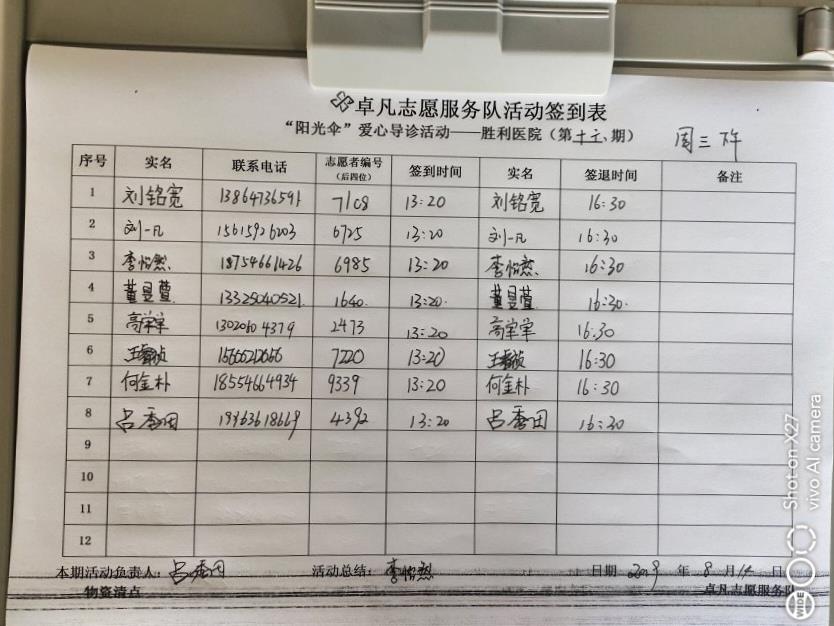 卓凡志愿服务队活动签到表
“阳光伞”爱心导诊活动——胜利医院（第十二期） 周三下午
序号 实名 联系电话 志愿者编号（后四位） 签到时间 实名 签退时间 备注
1 刘铭宽 13864736591 7108 13:20 刘铭宽 16:30
2 刘一凡 15615926203 6725 13:20 刘一凡 16:30
3 李怡然 18754661426 6985 13:20 李怡然 16:30
4 董昱萱 13325040521 1640 13:20 董昱萱 16:30
5 高学学 13020604379 2473 13:20 高学学 16:30
6 7220 13:20 16:30
7 何金朴 18554664934 9339 13:20 何金朴 16:30
8 吕秀田 4392 13:20 吕秀田 16:30
9
10
11
12
本期活动负责人：吕秀田 活动总结：李怡然 日期 2019 年 8 月 14 日
物资清点 卓凡志愿服务队
Shot on X27
vivo AI camera